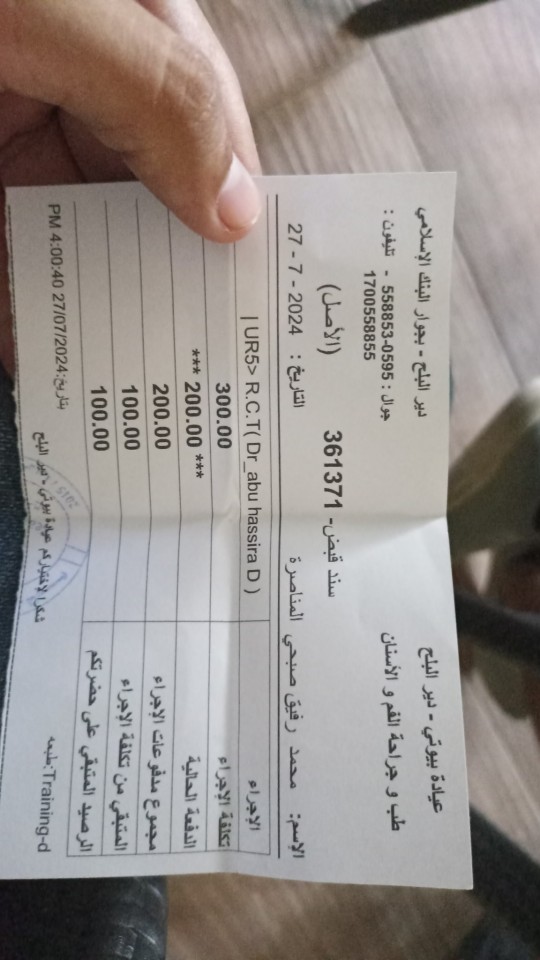 عيادة بيوتي - دير البلح
طب و جراحة الفم و الأسنان
دير البلح - بجوار البنك الإسلامي
جوال : 0595-558853 - تليفون :
1700558855
سند قبض - 361371 (الأصل)
الإسم: محمد رفيق صبحي المناصرة التاريخ : 2024 - 7 - 27
الإجراء | UR5> R.C.T( Dr_abu hassira D )
تكلفة الإجراء 300.00
الدفعة الحالية *** 200.00 ***
مجموع مدفوعات الإجراء 200.00
المتبقي من تكلفة الإجراء 100.00
الرصيد المتبقي على حضرتكم 100.00
طبعه:Training-d شكرا لاختياركم عيادة بيوتي - دير البلح بتاريخ:27/07/2024 4:00:40 PM